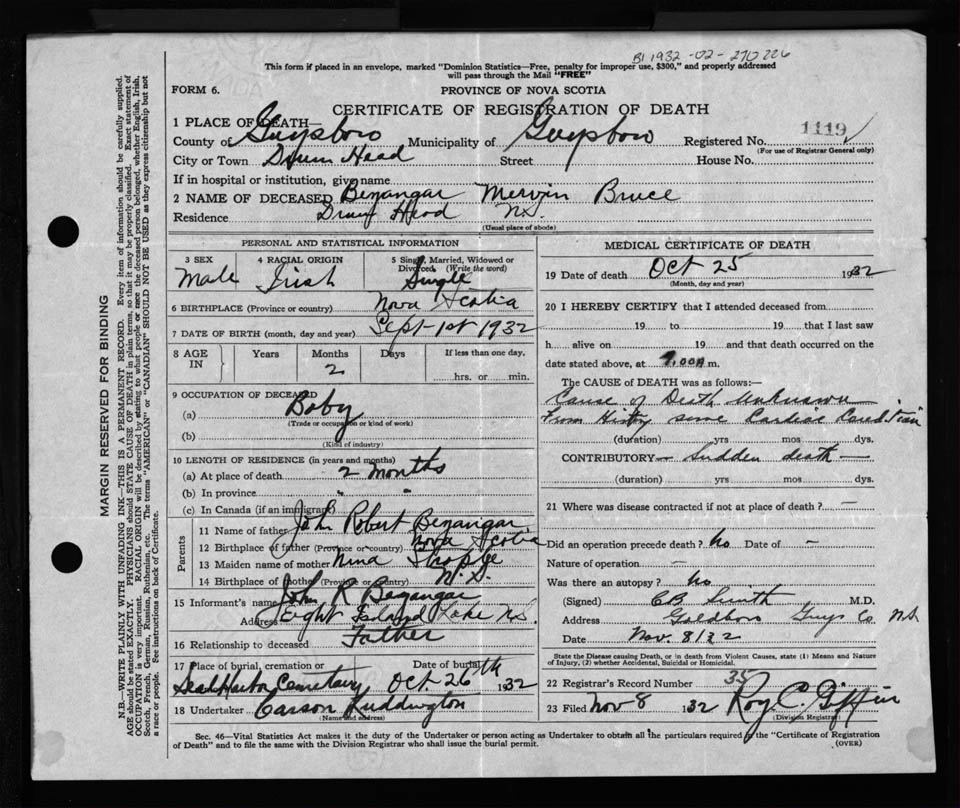 B1 1932-02-270226
This form if placed in an envelope, marked "Dominion Statistics—Free, penalty for improper use, $300," and properly addressed
will pass through the Mail "FREE"
FORM 6.
PROVINCE OF NOVA SCOTIA
CERTIFICATE OF REGISTRATION OF DEATH
1 PLACE OF DEATH—
County of Guysboro Municipality of Guysboro Registered No. 1119
(For use of Registrar General only)
City or Town Drum Head Street House No.
If in hospital or institution, give name
2 NAME OF DECEASED Bezangar Mervin Bruce
Residence Drum Head N.S.
(Usual place of abode)
MARGIN RESERVED FOR BINDING
N.B.—WRITE PLAINLY WITH UNFADING INK—THIS IS A PERMANENT RECORD. Every item of information should be carefully supplied.
AGE should be stated EXACTLY. PHYSICIANS should STATE CAUSE OF DEATH in plain terms, so that it may be properly classified. Exact statement of
OCCUPATION is very important. RACIAL ORIGIN will be described by stating to what people or race the deceased person belonged, whether English, Irish,
Scotch, French, German, Russian, Ruthenian, etc. The terms "AMERICAN" or "CANADIAN" SHOULD NOT BE USED as they express citizenship but not
a race or people. See instructions on back of Certificate.
PERSONAL AND STATISTICAL INFORMATION
3 SEX
Male
4 RACIAL ORIGIN
Irish
5 Single, Married, Widowed or
Divorced (Write the word)
Single
6 BIRTHPLACE (Province or country) Nova Scotia
7 DATE OF BIRTH (month, day and year) Sept-1st 1932
8 AGE IN
Years
Months
2
Days
If less than one day,
hrs. or min.
9 OCCUPATION OF DECEASED
(a) Baby
(Trade or occupation or kind of work)
(b)
(Kind of industry)
10 LENGTH OF RESIDENCE (in years and months)
(a) At place of death 2 months
(b) In province " "
(c) In Canada (if an immigrant)
Parents
11 Name of father John Robert Bezangar
12 Birthplace of father (Province or country) Nova Scotia
13 Maiden name of mother Nina
14 Birthplace of mother (Province or Country) N.S.
15 Informant's name John R Bezangar
Address Eight Island Lake N.S.
16 Relationship to deceased Father
17 Place of burial, cremation or Date of burial
Seal Harbor Cemetary Oct 26th 1932
18 Undertaker Carson Luddington
(Name and address)
MEDICAL CERTIFICATE OF DEATH
19 Date of death Oct 25 1932
(Month, day and year)
20 I HEREBY CERTIFY that I attended deceased from
19 to 19 that I last saw
h alive on 19 and that death occurred on the
date stated above, at 9.00 A m.
The CAUSE OF DEATH was as follows:—
Cause of Death Unknown
From History some Cardiac Condition
(duration) yrs mos dys.
CONTRIBUTORY — Sudden death —
(duration) yrs mos dys.
21 Where was disease contracted if not at place of death? —
Did an operation precede death? no Date of —
Nature of operation —
Was there an autopsy? no
(Signed) CB Smith M.D.
Address Goldboro Guys Co N.S.
Date Nov. 8/32
State the Disease causing Death, or in death from Violent Causes, state (1) Means and Nature
of Injury, (2) whether Accidental, Suicidal or Homicidal.
22 Registrar's Record Number 35
23 Filed Nov 8 1932 Roy C. Giffin
(Division Registrar)
Sec. 46—Vital Statistics Act makes it the duty of the Undertaker or person acting as Undertaker to obtain all the particulars required in the "Certificate of Registration
of Death" and to file the same with the Division Registrar who shall issue the burial permit.
(OVER)